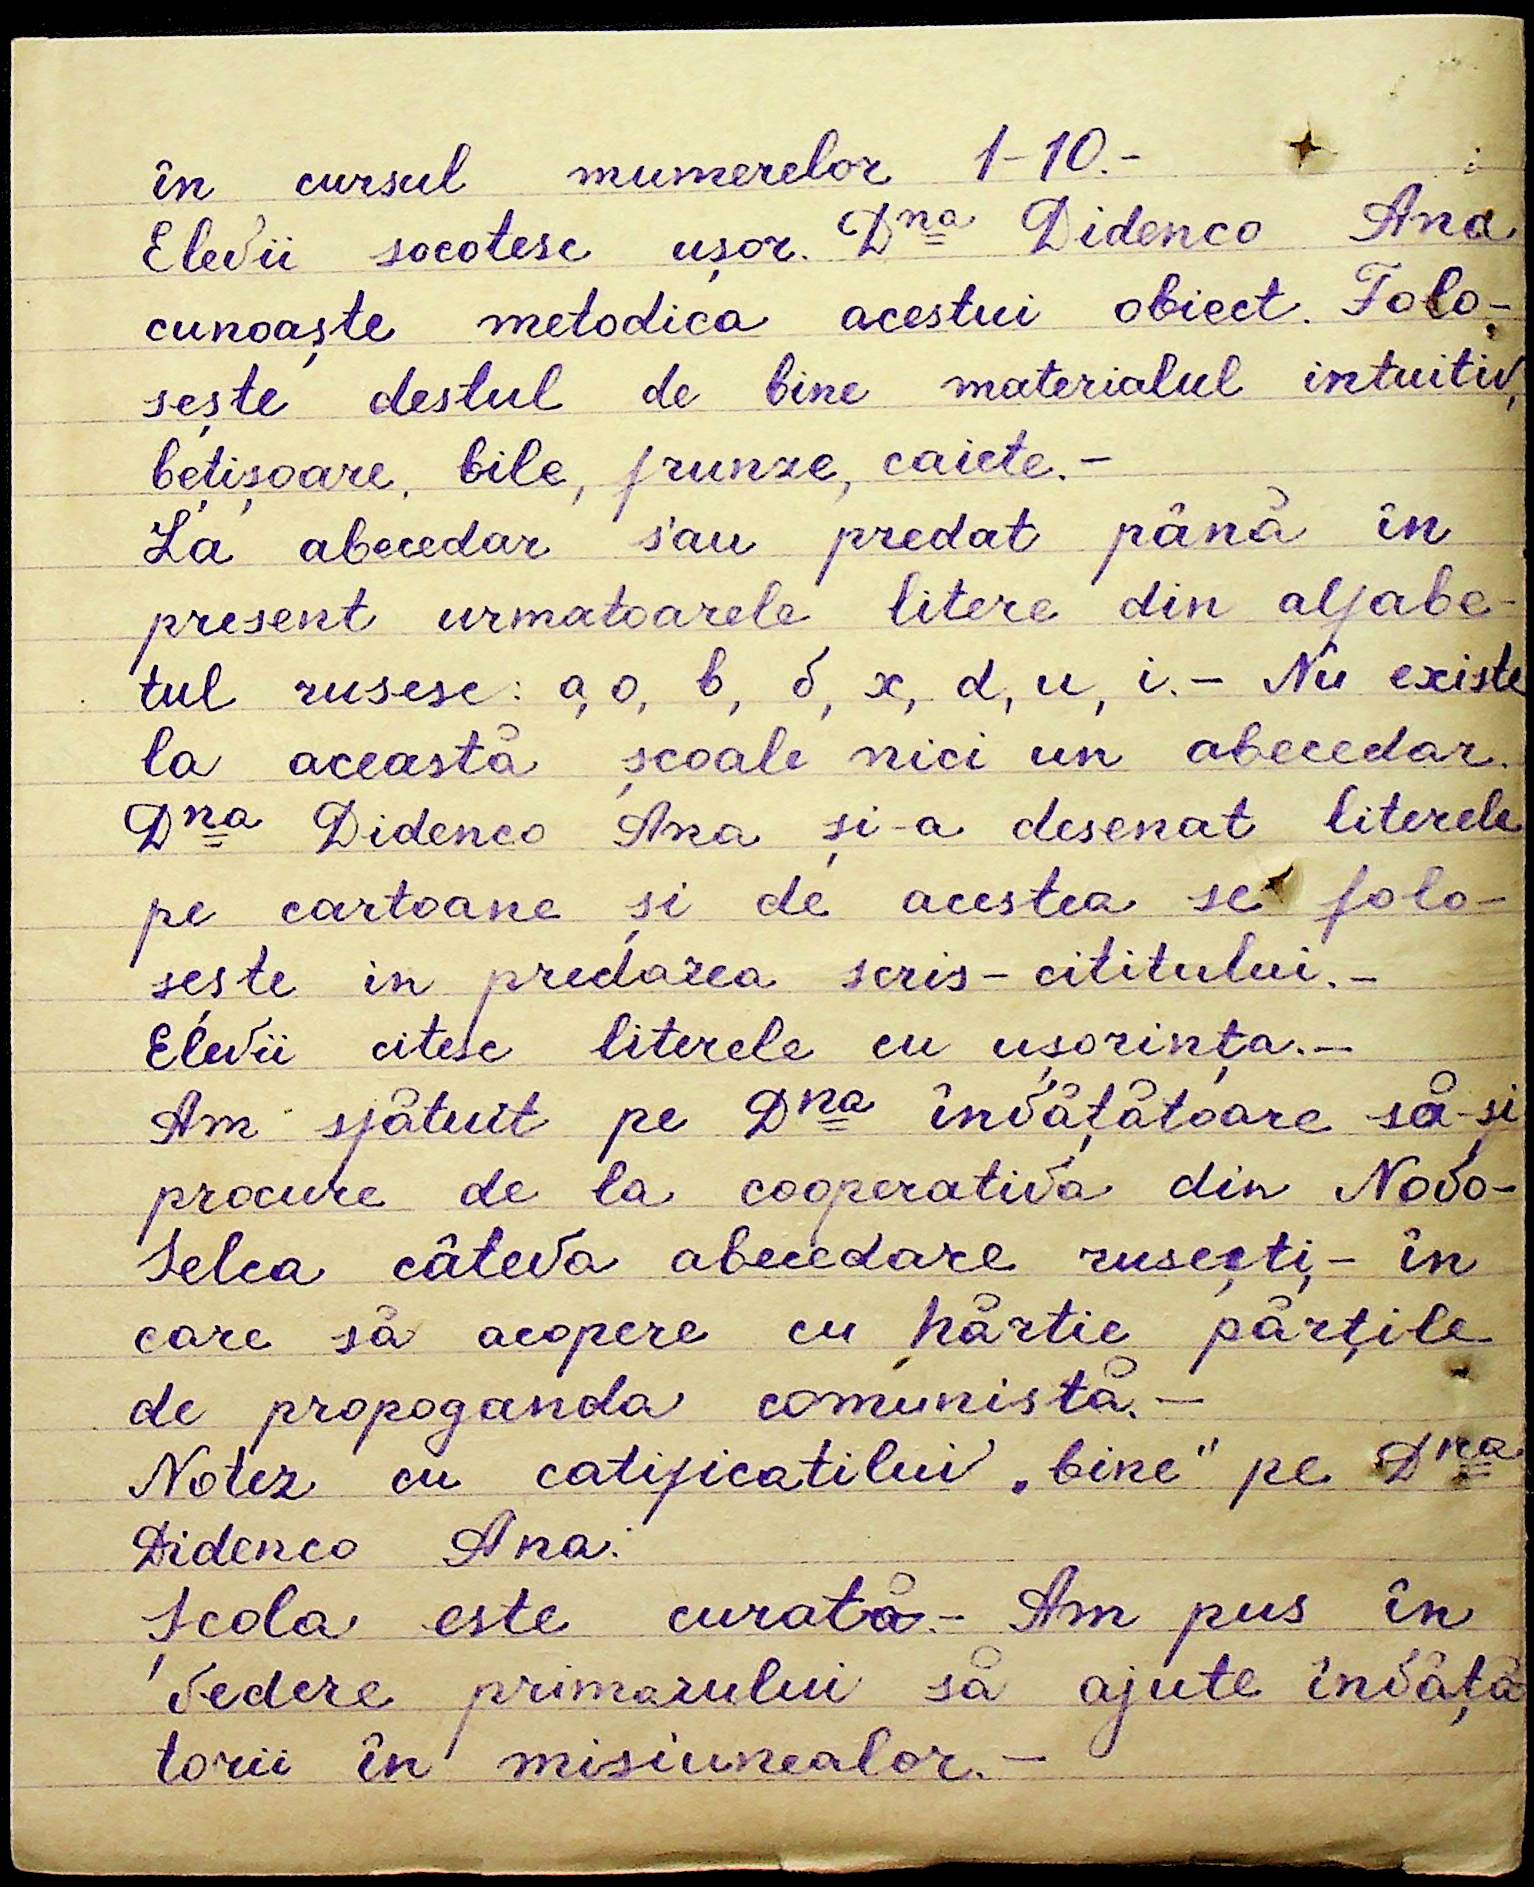 în cursul mumerelor 1-10.-
Elevii socotesc ușor. Dna Didenco Ana
cunoaște metodica acestui obiect. Folo-
sește destul de bine materialul intuitiv,
bețișoare, bile, frunze, caiete.-
La abecedar s'au predat până în
present urmatoarele litere din alfabe-
tul rusesc: a, o, b, б, x, d, u, i.- Nu existe
la această școale nici un abecedar.
Dna Didenco Ana și-a desenat literele
pe cartoane și de acestea se folo-
sește in predarea scris-cititului.-
Elevii citesc literele cu ușorința.-
Am sfătuit pe Dna învățătoare să-și
procure de la cooperativa din Novo-
Selca câteva abecedare rusești,- în
care să acopere cu hârtie părțile
de propoganda comunistă.-
Notez cu catificatilui „bine" pe Dna
Didenco Ana.
Școla este curată.- Am pus în
vedere primarului să ajute învăță
torii în misiunealor.-